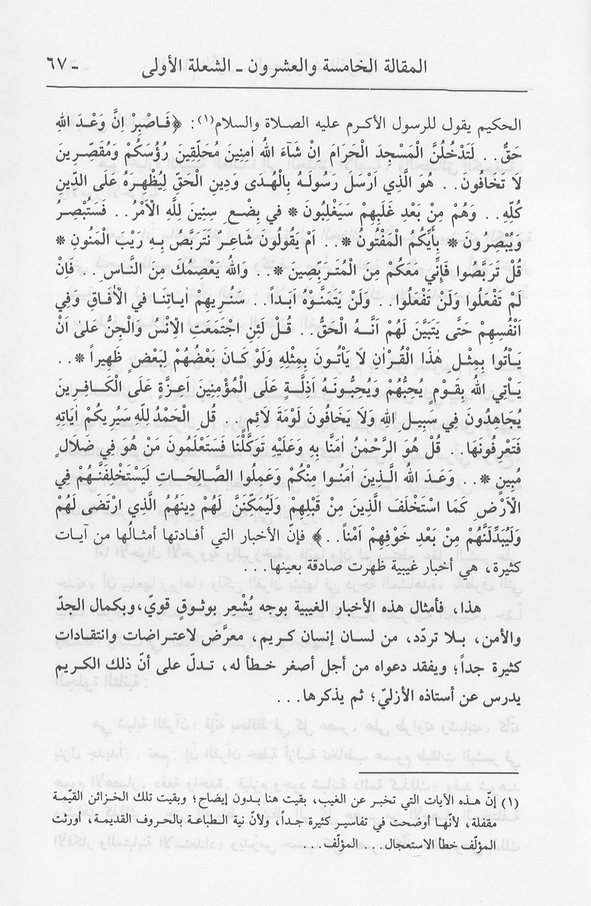 المقالة الخامسة والعشرون ـ الشعلة الأولى
ـ ٦٧
الحكيم يقول للرسول الأكرم عليه الصلاة والسلام(١): ﴿فَاصْبِرْ اِنَّ وَعْدَ اللهِ
حَقٌّ.. لَتَدْخُلُنَّ الْمَسْجِدَ الْحَرَامَ اِنْ شَآءَ اللهُ اٰمِنِينَ مُحَلِّقِينَ رُؤُسَكُمْ وَمُقَصِّرِينَ
لاَ تَخَافُونَ.. هُوَ الَّذِي اَرْسَلَ رَسُولَهُ بِالْهُدَى وَدِينِ الْحَقِّ لِيُظْهِرَهُ عَلَى الدِّينِ
كُلِّهِ.. وَهُمْ مِنْ بَعْدِ غَلَبِهِمْ سَيَغْلِبُونَ * في بِضْعِ سِنِينَ لِلَّهِ الْاَمْرُ.. فَسَتُبْصِرُ
وَيُبْصِرُونَ * بِأَيِّكُمُ الْمَفْتُونُ *.. اَمْ يَقُولُونَ شَاعِرٌ نَتَرَبَّصُ بِهِ رَيْبَ الْمَنُونِ *
قُلْ تَرَبَّصُوا فَاِنِّي مَعَكُمْ مِنَ الْمُتَرَبِّصِينَ *.. وَاللهُ يَعْصِمُكَ مِنَ النَّاسِ.. فَاِنْ
لَمْ تَفْعَلُوا وَلَنْ تَفْعَلُوا.. وَلَنْ يَتَمَنَّوْهُ اَبَداً.. سَنُرِيهِمْ اٰيَاتِنَا في الْاٰفَاقِ وَفِي
اَنْفُسِهِمْ حَتَّى يَتَبَيَّنَ لَهُمْ اَنَّهُ الْحَقُّ.. قُلْ لَئِنِ اجْتَمَعَتِ الْاِنْسُ وَالْجِنُّ عَلىٰ اَنْ
يَاْتُوا بِمِثْلِ هٰذَا الْقُرْاٰنِ لاَ يَاْتُونَ بِمِثْلِهِ وَلَوْ كَانَ بَعْضُهُمْ لِبَعْضٍ ظَهِيراً *..
يَاْتِي اللهُ بِقَوْمٍ يُحِبُّهُمْ وَيُحِبُّونَهُ اَذِلَّةٍ عَلَى الْمُؤْمِنِينَ اَعِزَّةٍ عَلَى الْكَافِرِينَ
يُجَاهِدُونَ فِي سَبِيلِ اللهِ وَلاَ يَخَافُونَ لَوْمَةَ لاَئِمٍ.. قُلِ الْحَمْدُ لِلَّهِ سَيُرِيكُمْ اٰيَاتِهِ
فَتَعْرِفُونَهَا.. قُلْ هُوَ الرَّحْمٰنُ اٰمَنَّا بِهِ وَعَلَيْهِ تَوَكَّلْنَا فَسَتَعْلَمُونَ مَنْ هُوَ فِي ضَلاَلٍ
مُبِينٍ *.. وَعَدَ اللهُ الَّذِينَ اٰمَنُوا مِنْكُمْ وَعَمِلُوا الصَّالِحَاتِ لَيَسْتَخْلِفَنَّهُمْ فِي
الْاَرْضِ كَمَا اسْتَخْلَفَ الَّذِينَ مِنْ قَبْلِهِمْ وَلَيُمَكِّنَنَّ لَهُمْ دِينَهُمُ الَّذِي ارْتَضَى لَهُمْ
وَلَيُبَدِّلَنَّهُمْ مِنْ بَعْدِ خَوْفِهِمْ اَمْناً..﴾ فإنّ الأخبار التي أفادتها أمثالُها من آيات
كثيرة، هي أخبار غيبية ظهرت صادقة بعينها...
هذا، فأمثال هذه الأخبار الغيبية بوجه يُشْعِر بوثوقٍ قويّ، وبكمال الجدّ
والأمن، بلا تردّد، من لسان إنسان كريم، معرَّض لاعتراضات وانتقادات
كثيرة جداً؛ ويفقد دعواه من أجل أصغر خطأ له، تدلّ على أنّ ذلك الكريم
يدرس عن أستاذه الأزليّ؛ ثم يذكرها...
(١) إنّ هذه الآيات التي تخبر عن الغيب، بقيت هنا بدون إيضاح؛ وبقيت تلك الخزائن القيّمة
مقفلة، لأنّها أوضحت في تفاسير كثيرة جداً، ولأنّ نية الطباعة بالحروف القديمة، أورثت
المؤلّف خطأ الاستعجال... المؤلّف...